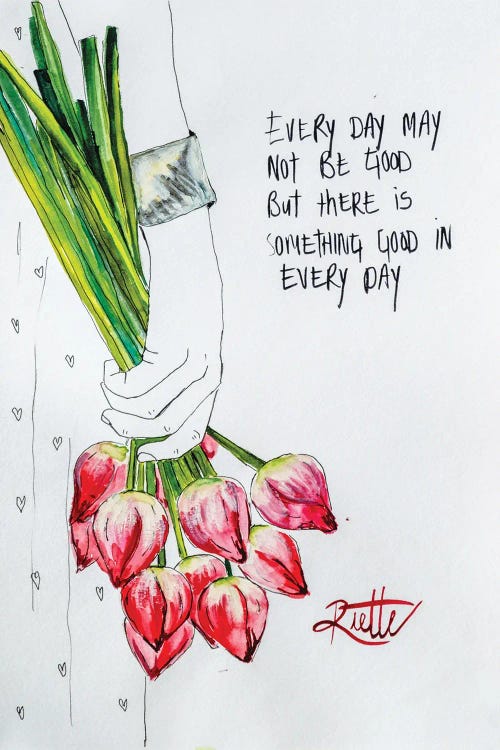 EVERY DAY MAY
NOT BE GOOD
BUT tHERE IS
SOMETHING GOOD IN
EVERY DAY
Riette